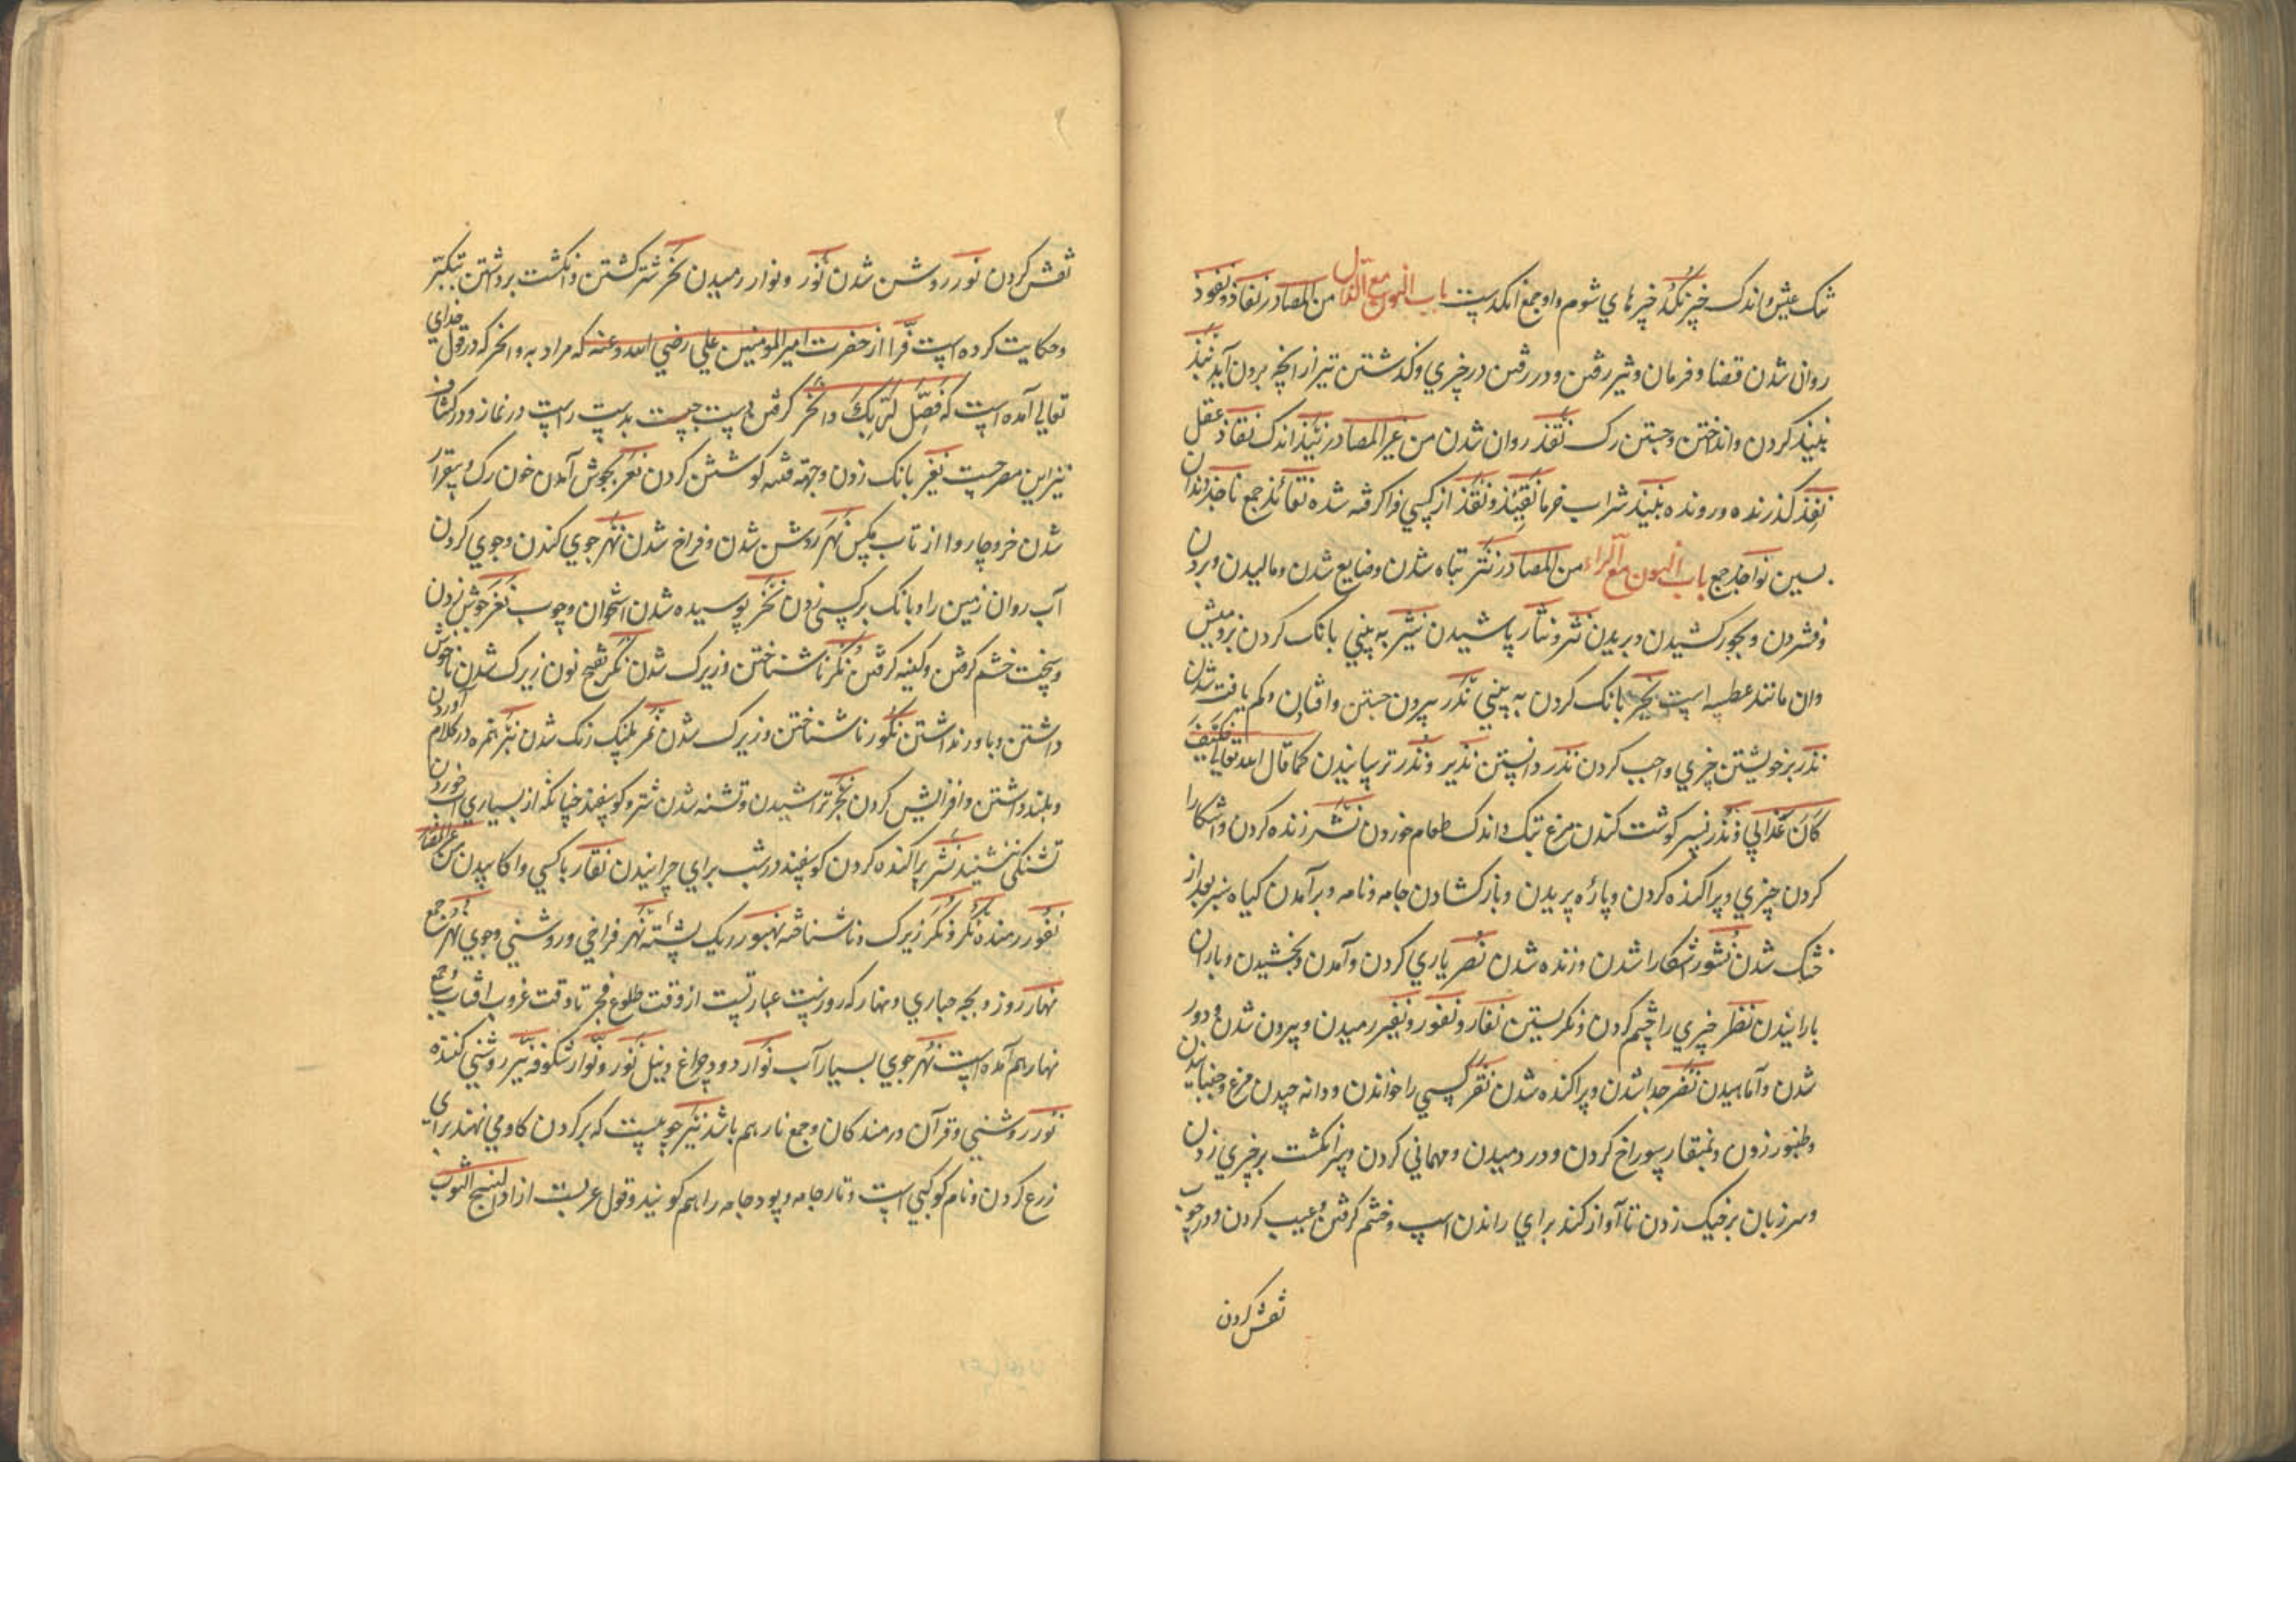 تنک عیش و اندک خیر نکد خیرهای شوم واو جمع انکدست باب النون مع الذال من المصادر نفاذ و نفوذ
روان شدن قضا و فرمان و تیر رفتن و در رفتن در چیزی و گذشتن تیر از آنچه برون آید نبذ
نبیذ کردن و انداختن و جستن رک نقذ روان شدن من غیر المصادر نبذ اندک نفاذ عقل
نفذ گذرنده و رونده نبیذ شراب خرما نقیذ و نقذ از کسی فراگرفته شده نقائذ جمع ناجذ دندان
بسین نواجذ جمع باب النون مع الراء من المصادر نتر تباه شدن و ضایع شدن و مالیدن و بردن
و فشردن و بجور کشیدن و بریدن نثر و نثار پاشیدن نثیر به بینی بانک کردن بز و میش
وان مانند عطسه است نخیر بانک کردن به بینی ندر بیرون جستن و افتادن و کم یافت شدن
نذر بر خویشتن چیزی واجب کردن نذر دانستن نذیر و نذر ترسانیدن کما قال الله تعالی فکیف
کان عذابی و نذر نسر گوشت کندن مرغ تنک و اندک طعام خوردن نشر زنده کردن و آشکارا
کردن چیزی و پراکنده کردن و پاره بریدن و باز کشادن جامه و نامه و برآمدن گیاه سبز بعد از
خشک شدن نشور آشکارا شدن و زنده شدن نصر یاری کردن و آمدن و بخشیدن و باران
بارانیدن نظر چیزی را چشم کردن و نگریستن نفار و نفور و نفیر رمیدن و بیرون شدن و دور
شدن و آماهیدن نفر جدا شدن و پراکنده شدن نقر کسی را خواندن و دانه چیدن مرغ و جنبانیدن
و طنبور زدن و بمنقار سوراخ کردن و در دمیدن و مهمانی کردن و سر انگشت بر چیزی زدن
و سر زبان بر خنک زدن تا آواز کند برای راندن اسب و خشم گرفتن و عیب کردن و در چوب
نقش کردن
نقش کردن نور روشن شدن نور و نوار رمیدن نحر شتر کشتن و انگشت برداشتن بتکبیر
و حکایت کرده است فرا از حضرت امیر المومنین علی رضی الله عنه که مراد به وانحر که در قول خدای
تعالی آمده است که فصل لربک وانحر گرفتن دست چپ است بدست راست در نماز و در کشاف
نیز این مصرحست نعیر بانک زدن و جهة فتنه کوشش کردن نعر بجوش آمدن خون رک و بیقرار
شدن خر و چاروا از تاب مکس نهر روشن شدن و فراخ شدن نهر جوی کندن و جوی کردن
آب روان زمین را و بانک بر کسی زدن نخر پوسیده شدن استخوان و چوب نغر جوش زدن
و سخت خشم گرفتن و کینه گرفتن نکر ناشناختن و زیرک شدن نکر بفتح نون زیرک شدن ناخوش
داشتن و باور نداشتن نکور ناشناختن و زیرک شدن نمر پلنک رنک شدن نبر همزه در کلام آوردن
و بلند داشتن و افزایش کردن نجر تراشیدن و تشنه شدن شتر و کوسفند چنانکه از بسیاری آب خوردن
تشنگی ننشیند نشر پراکنده کردن کوسفند در شب برای چرانیدن نقار با کسی واکاویدن من غیر المصادر
نفور رمنده نکر و نکر زیرک و ناشناخته نهبور ریک پشته نهر فراخی و روشنی و جوی نهر جمع
نهار روز و بچه حباری و نهار که روزست عبارتست از وقت طلوع فجر تا وقت غروب آفتاب و جمع
نهار هم آمده است نهر جوی بسیار آب نوار دود چراغ و نیل نور و نوار شکوفه نیر روشنی کننده
نور روشنی و قرآن و رمندکان و جمع نار هم باشد نیر چوبیست که بر گردن گاو می نهند برای
زرع کردن و نام کوکبی است و تار جامه و پود جامه را هم گویند و قول عربست از اد لنسیج الثوب